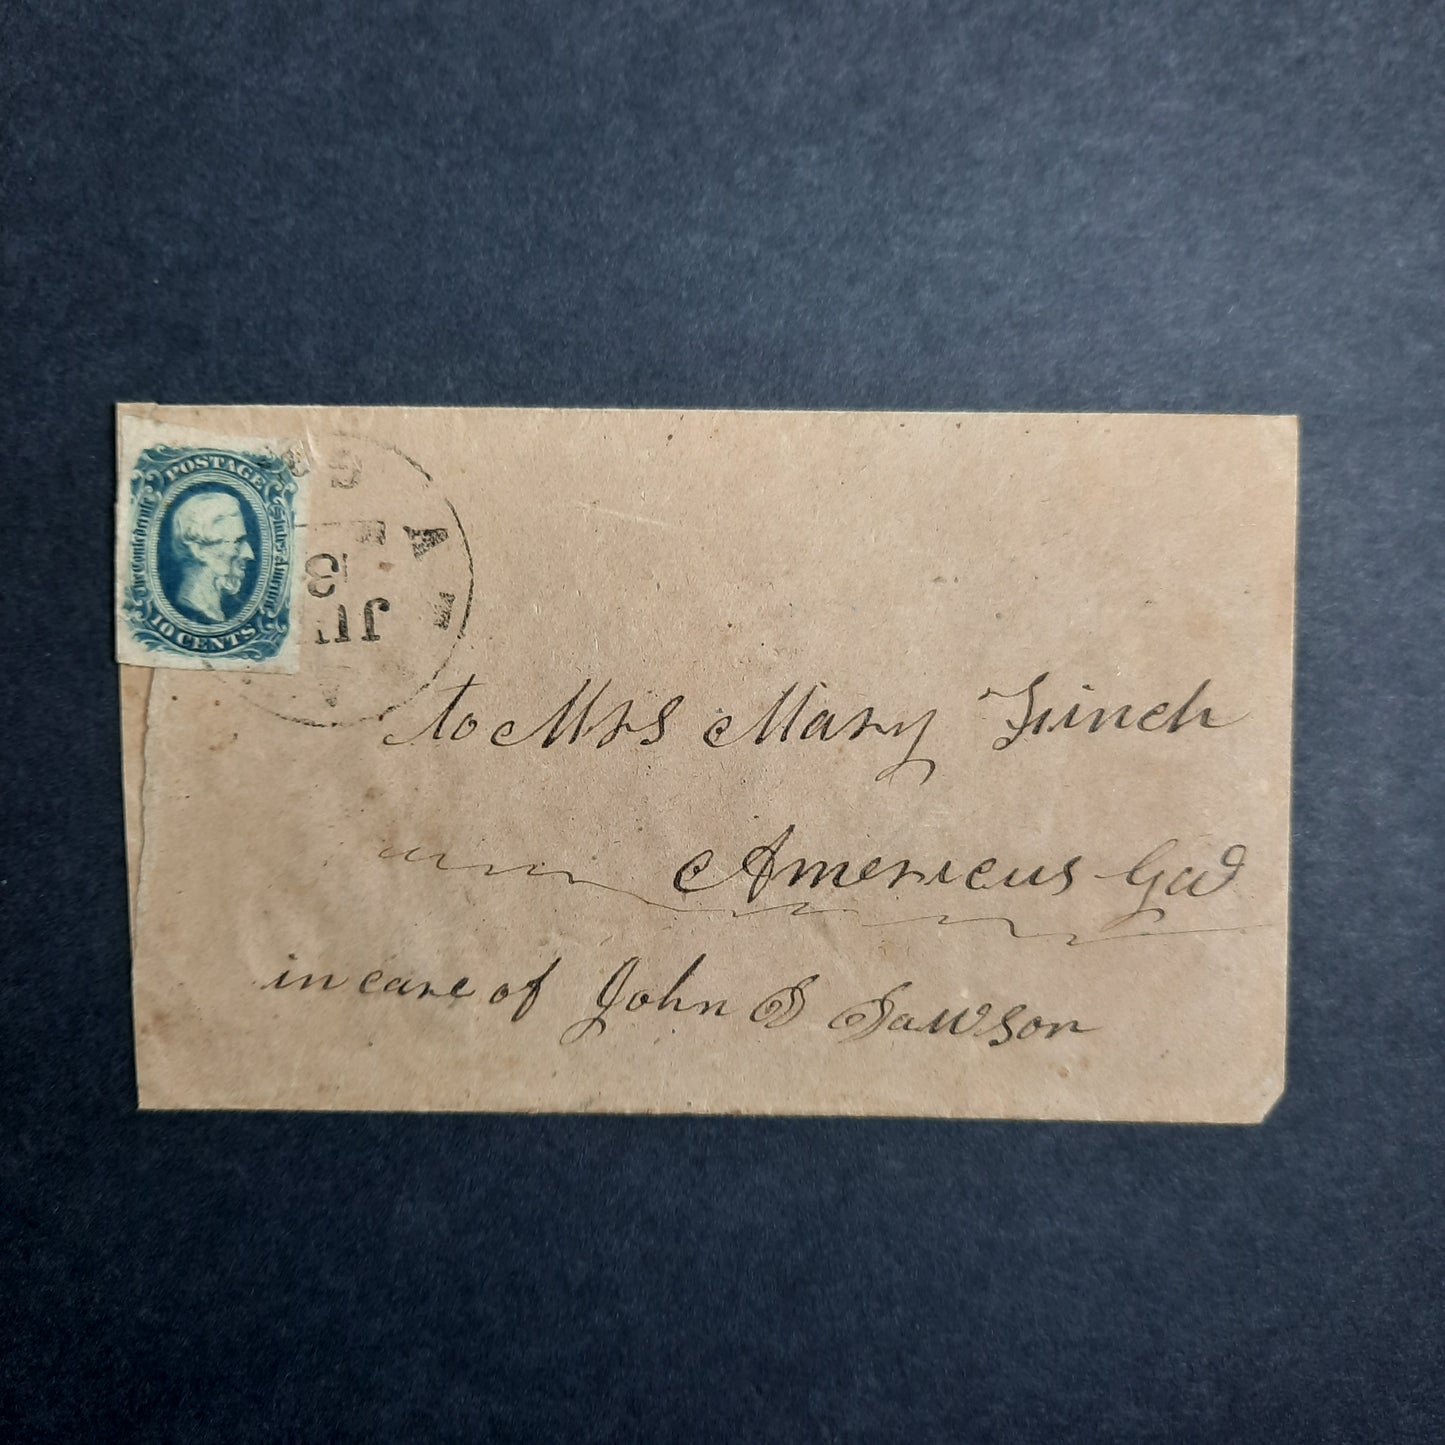 POSTAGE
The Confederate
States America
10 CENTS
to Mrs Mary Finch
Americus Ga
in care of John